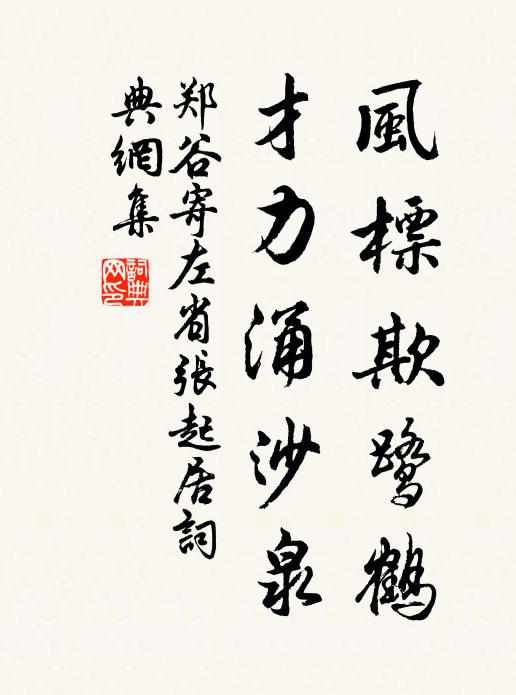 風標欺鹭鹤
才力涌沙泉
郑谷寄左省張起居詞
典網集
詞典网印